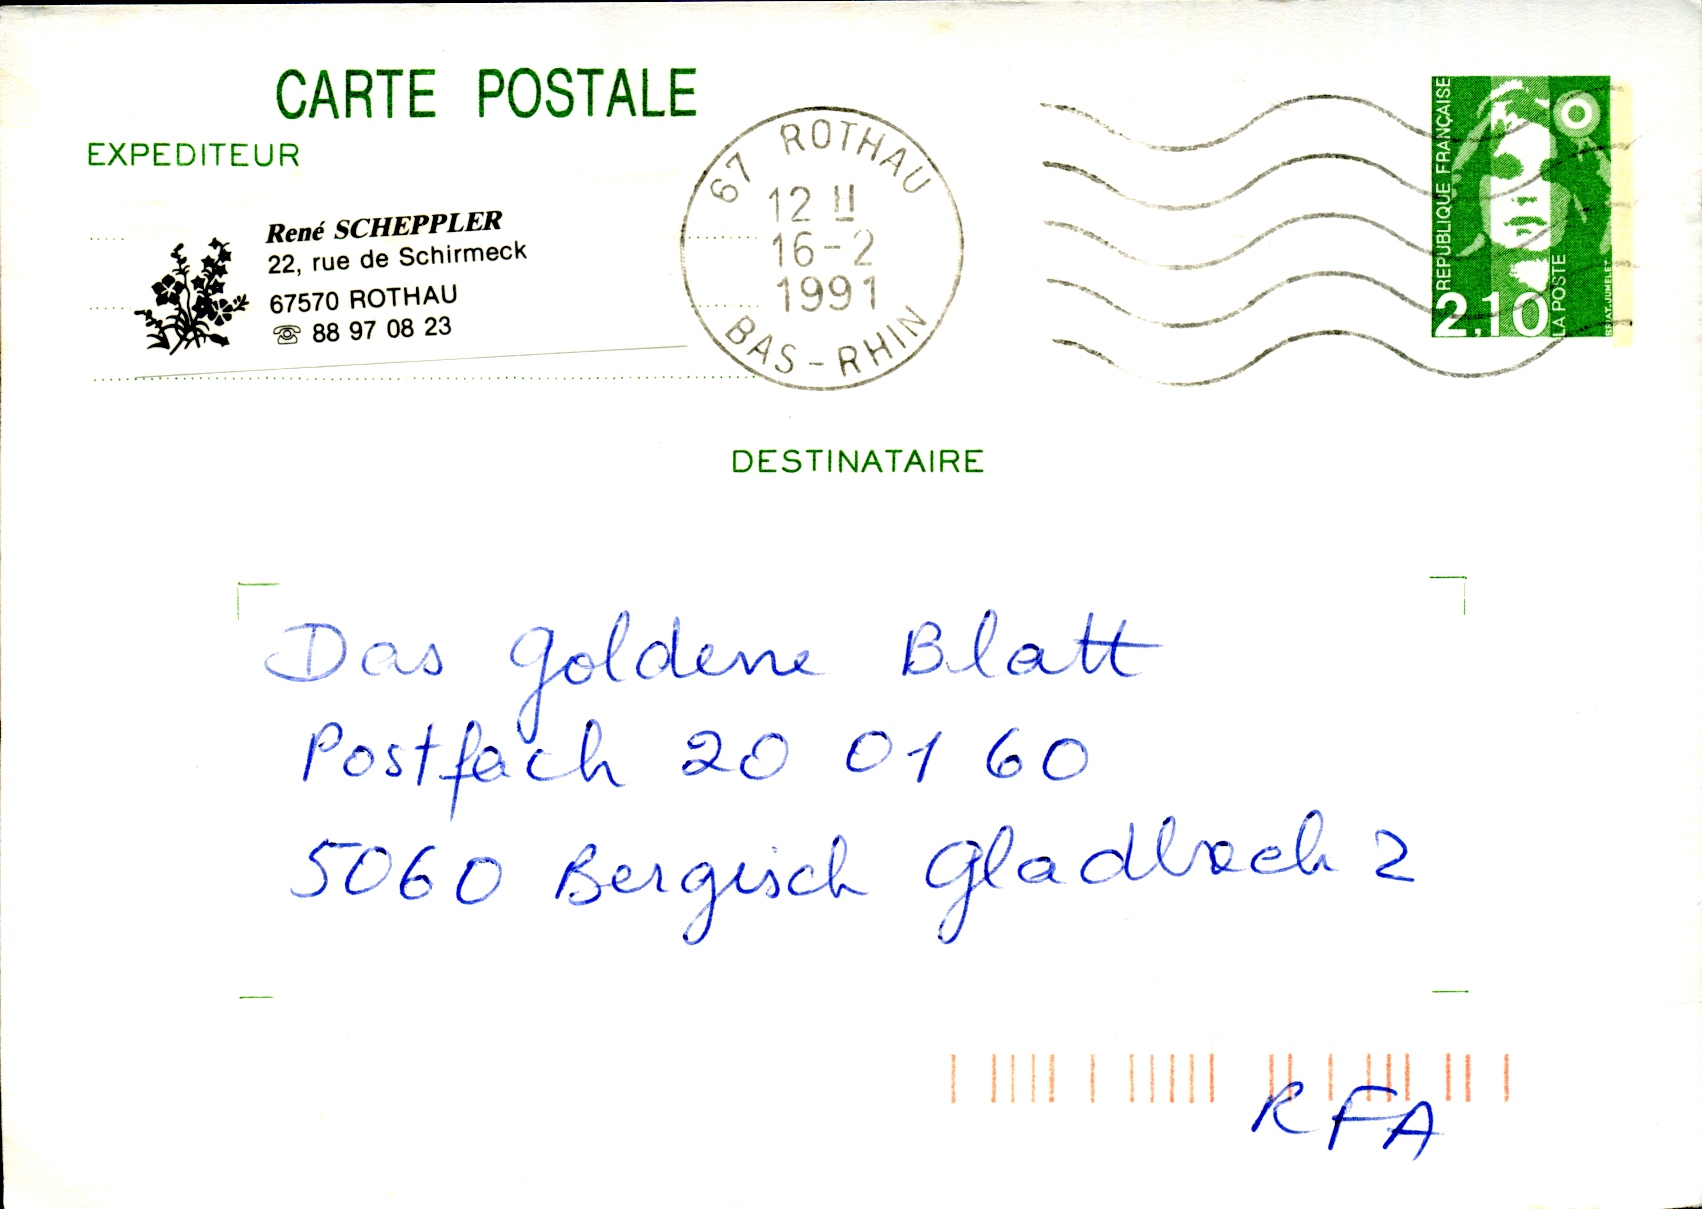 CARTE POSTALE
EXPEDITEUR
René SCHEPPLER
22, rue de Schirmeck
67570 ROTHAU
☏ 88 97 08 23
67 ROTHAU
12 H
16-2
1991
BAS-RHIN
REPUBLIQUE FRANÇAISE
2,10
LA POSTE
BRIAT-JUMELET
DESTINATAIRE
Das goldene Blatt
Postfach 20 01 60
5060 Bergisch Gladbach 2
RFA